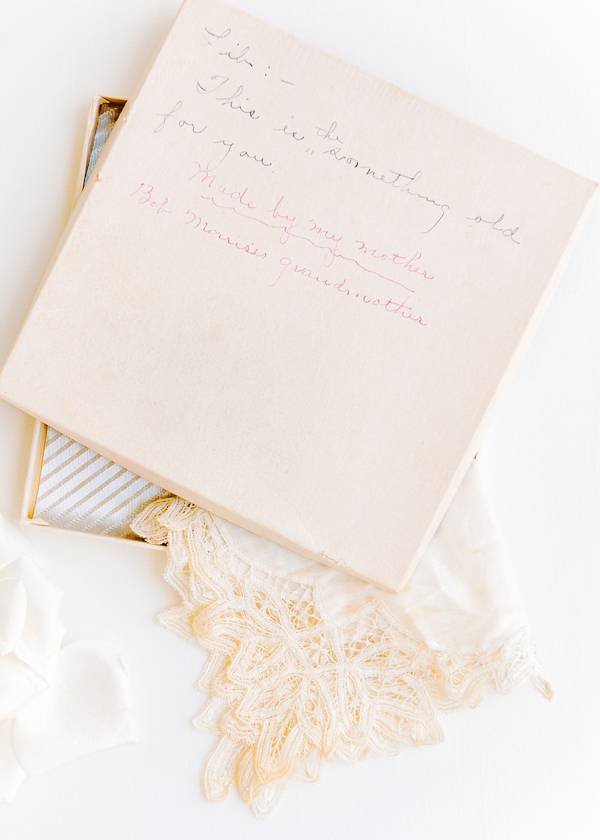 Lib:-
This is the "something old
for you.
Made by my mother
Bob Morrises grandmother